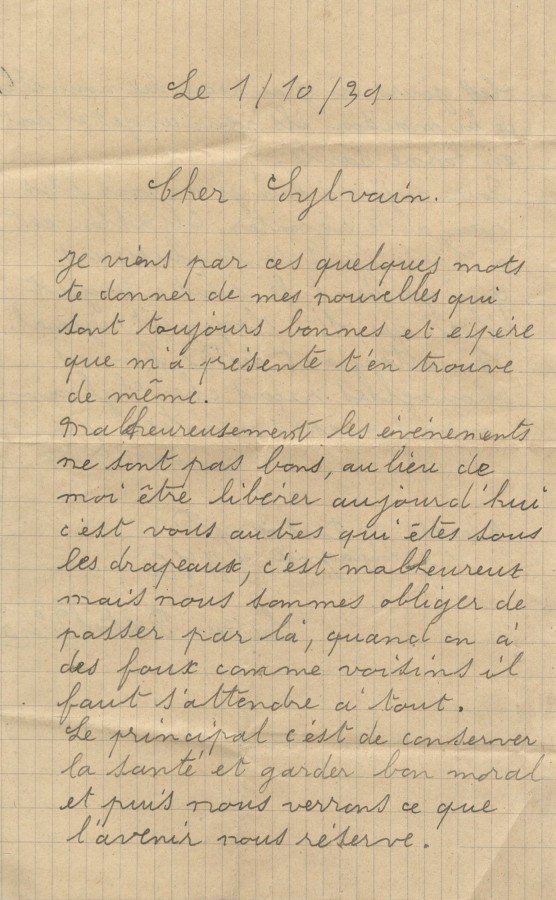 Le 1/10/39.
Cher Sylvain.
Je viens par ces quelques mots
te donner de mes nouvelles qui
sont toujours bonnes et espère
que m'a présente t'en trouve
de même.
Malheureusement les évènements
ne sont pas bons, au lieu de
moi être libérer aujourd'hui
c'est vous autres qui êtes sous
les drapeaux, c'est malheureux
mais nous sommes obliger de
passer par là, quand on à
des foux comme voisins il
faut s'attendre à tout.
Le principal c'est de conserver
la santé et garder bon moral
et puis nous verrons ce que
l'avenir nous réserve.